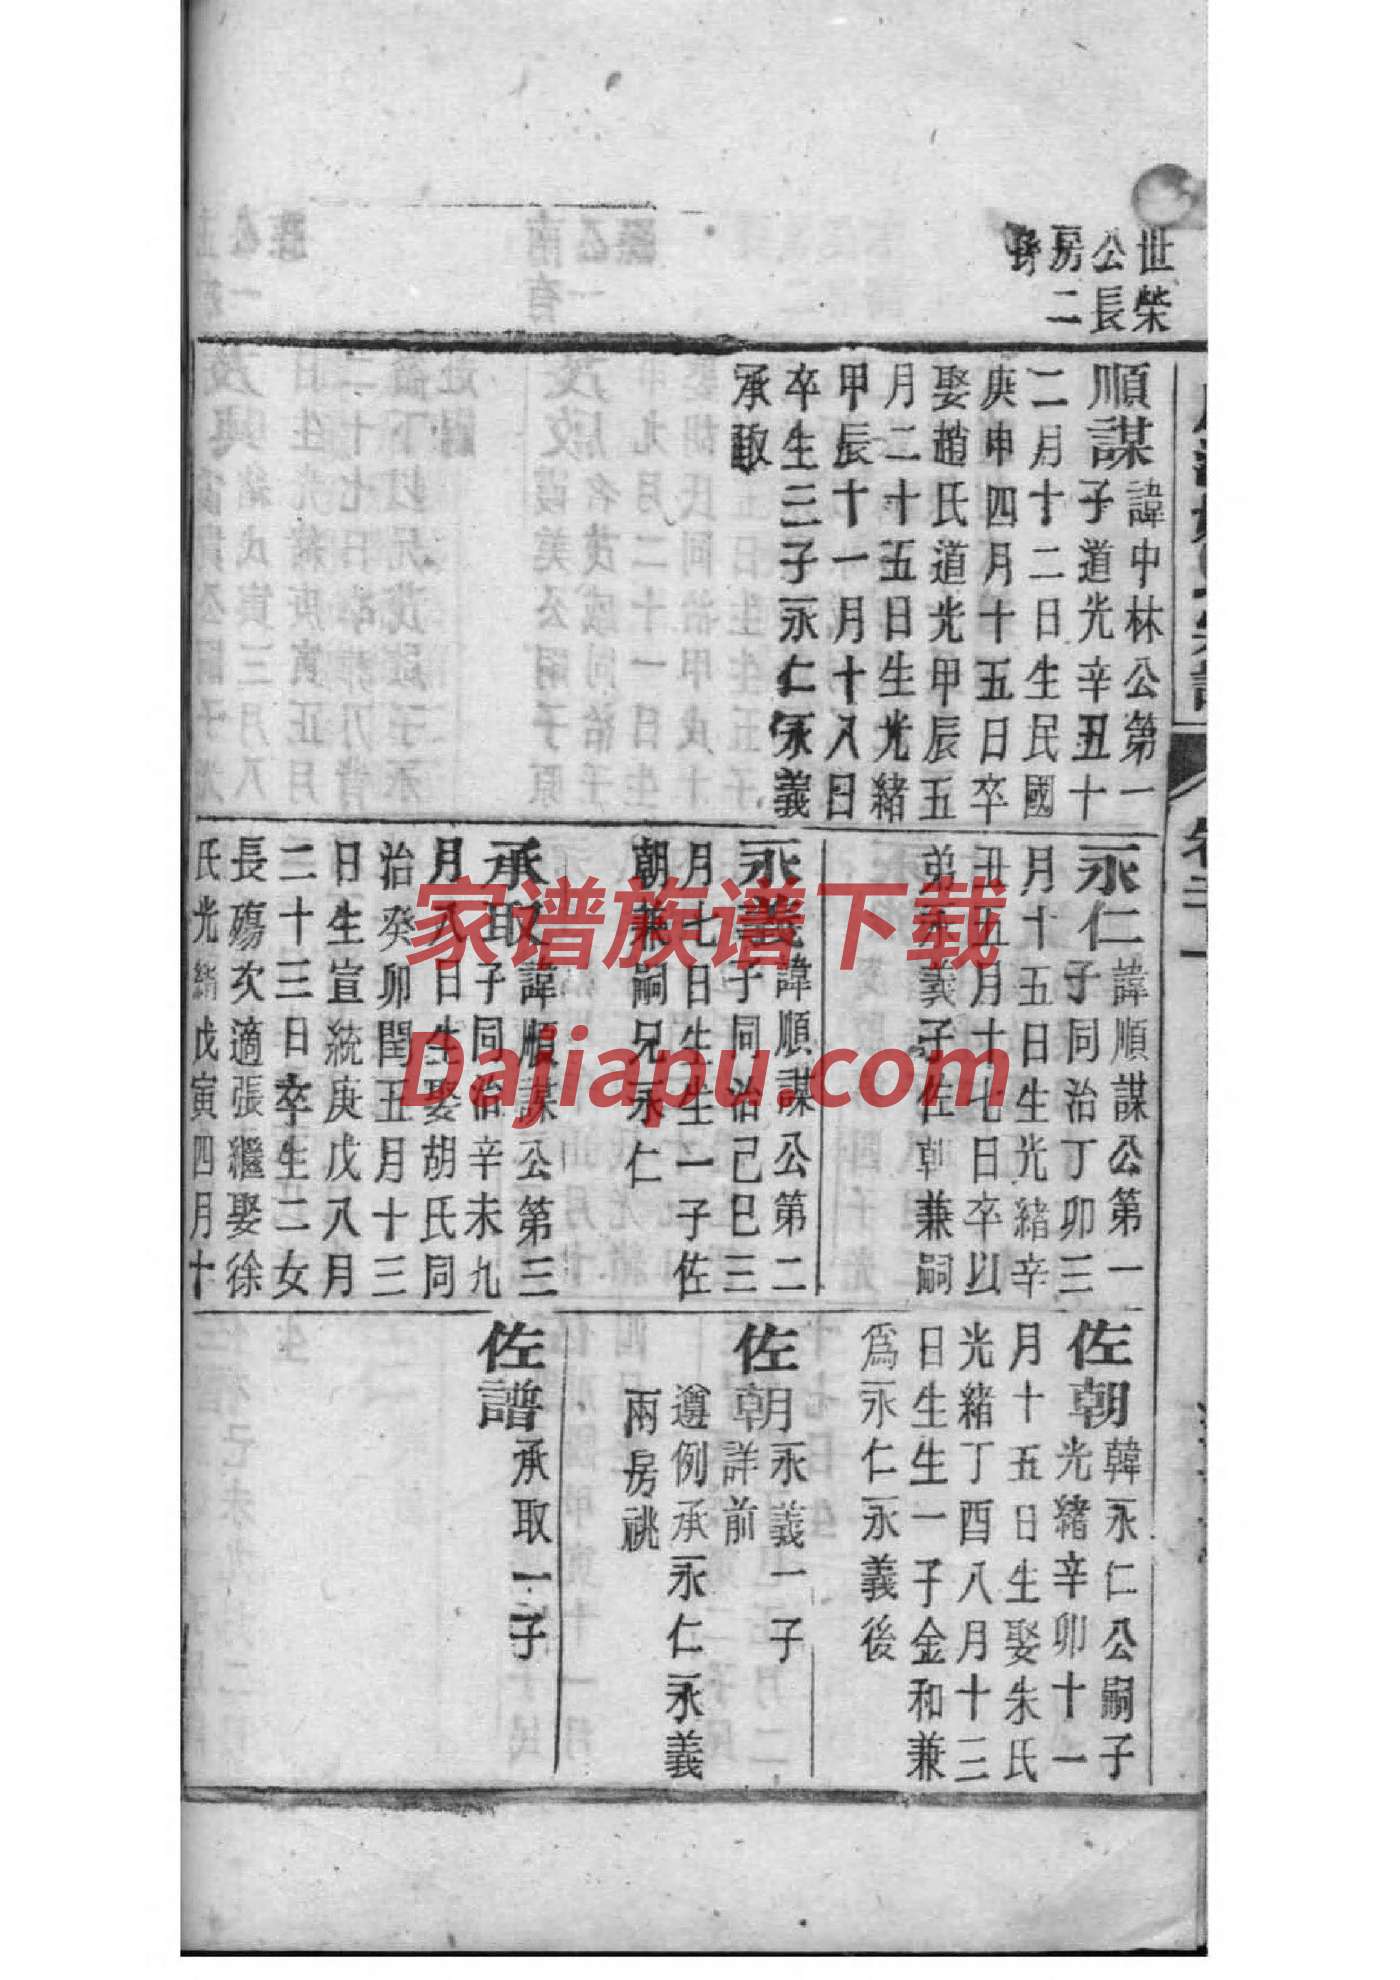 世榮
公長
房二
順謀
諱中林公第一
子道光辛丑十
二月十二日生民國
庚申四月十五日卒
娶趙氏道光甲辰五
月二十五日生光緒
甲辰十一月十八日
卒生三子永仁永義
承取
永仁
諱順謀公第一
子同治丁卯三
月十五日生光緒辛
丑五月十七日卒以
弟永義子佐朝兼嗣
永義
諱順謀公第二
子同治己巳三
月七日生生一子佐
朝兼嗣兄永仁
承取
諱順謀公第三
子同治辛未九
月八日生娶胡氏同
治癸卯閏五月十三
日生宣統庚戌八月
二十三日卒生二女
長殤次適張繼娶徐
氏光緒戊寅四月十
佐朝
韓永仁公嗣子
光緒辛卯十一
月十五日生娶朱氏
光緒丁酉八月十三
日生生一子金和兼
爲永仁永義後
佐朝
永義一子
詳前
遵例承永仁永義
兩房祧
佐譜
承取一子
家谱族谱下载
Dajiapu.com